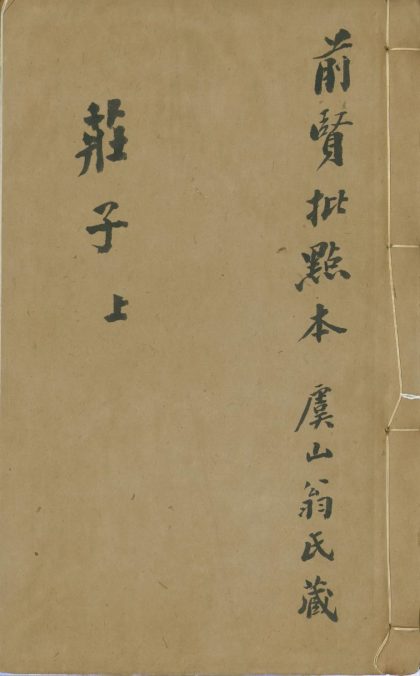 前賢批點本 虞山翁氏藏
莊子上